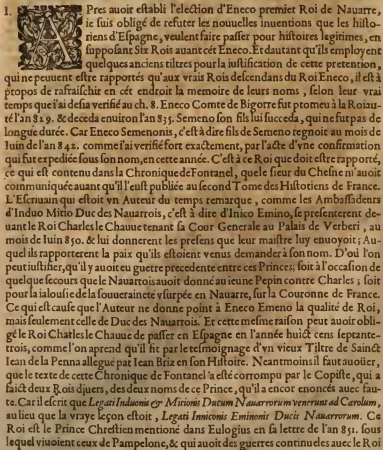 I. APres auoir establi l'election d'Eneco premier Roi de Nauarre,
ie suis obligé de refuter les nouuelles inuentions que les histo-
riens d'Espagne, veulent faire passer pour histoires legitimes, en
supposant Six Rois auant cét Eneco. Et dautant qu'ils employent
quelques anciens tiltres pour la iustification de cette pretention,
qui ne peuuent estre rapportés qu'aux vrais Rois descendans du Roi Eneco, il est à
propos de rafraischir en cét endroit la memoire de leurs noms, selon leur vrai
temps que i'ai desia verifié au ch. 8. Eneco Comte de Bigorre fut promeu à la Roiau-
té l'an 829. & deceda enuiron l'an 835. Semeno son fils lui succeda, qui ne fut pas de
longue durée. Car Eneco Semenonis, c'est à dire fils de Semeno regnoit au mois de
Iuin de l'an 842. comme i'ai verifié fort exactement, par l'acte d'vne confirmation
qui fut expediée sous son nom, en cette année. C'est à ce Roi que doit estre rapporté,
ce qui est contenu dans la Chronique de Fontanel, que le sieur du Chesne m'auoit
communiquée auant qu'il l'eust publiée au second Tome des Histoires de France.
L'Escriuain qui estoit vn Auteur du temps remarque, comme les Ambassadeurs
d'Induo Mitio Duc des Nauarrois, c'est à dire d'Inico Emino, se presenterent de-
uant le Roi Charles le Chauue tenant sa Cour Generale au Palais de Verberi, au
mois de Iuin 850. & lui donnerent les presens que leur maistre luy enuoyoit; Au-
quel ils rapporterent la paix qu'ils estoient venus demander à son nom. D'où l'on
peut iustifier, qu'il y auoit eu guerre precedente entre ces Princes; soit à l'occasion de
quelque secours que le Nauarrois auoit donné au ieune Pepin contre Charles; soit
pour la ialousie de la souueraineté vsurpée en Nauarre, sur la Couronne de France.
Ce qui est cause que l'Auteur ne donne point à Eneco Emeno la qualité de Roi,
mais seulement celle de Duc des Nauarrois. Et cette mesme raison peut auoir obli-
gé le Roi Charles le Chauue de passer en Espagne en l'année huict cens septante-
trois, comme l'on aprend qu'il fit par le tesmoignage d'vn vieux Tiltre de Sainct
Iean de la Penna allegué par Iean Briz en son Histoire. Neantmoins il faut auoüer,
que le texte de cette Chronique de Fontanel a esté corrompu par le Copiste, qui a
faict deux Rois diuers, des deux noms de ce Prince, qu'il a encor enoncés auec fau-
te. Car il escrit que Legati Induonis & Mitionis Ducum Nauarrorum venerunt ad Carolum,
au lieu que la vraye leçon estoit, Legati Inniconis Eminonis Ducis Nauarrorum. Ce
Roi est le Prince Chrestien mentioné dans Eulogius en sa lettre de l'an 851. sous
lequel viuoient ceux de Pampelone, & qui auoit des guerres continueles auec le Roi